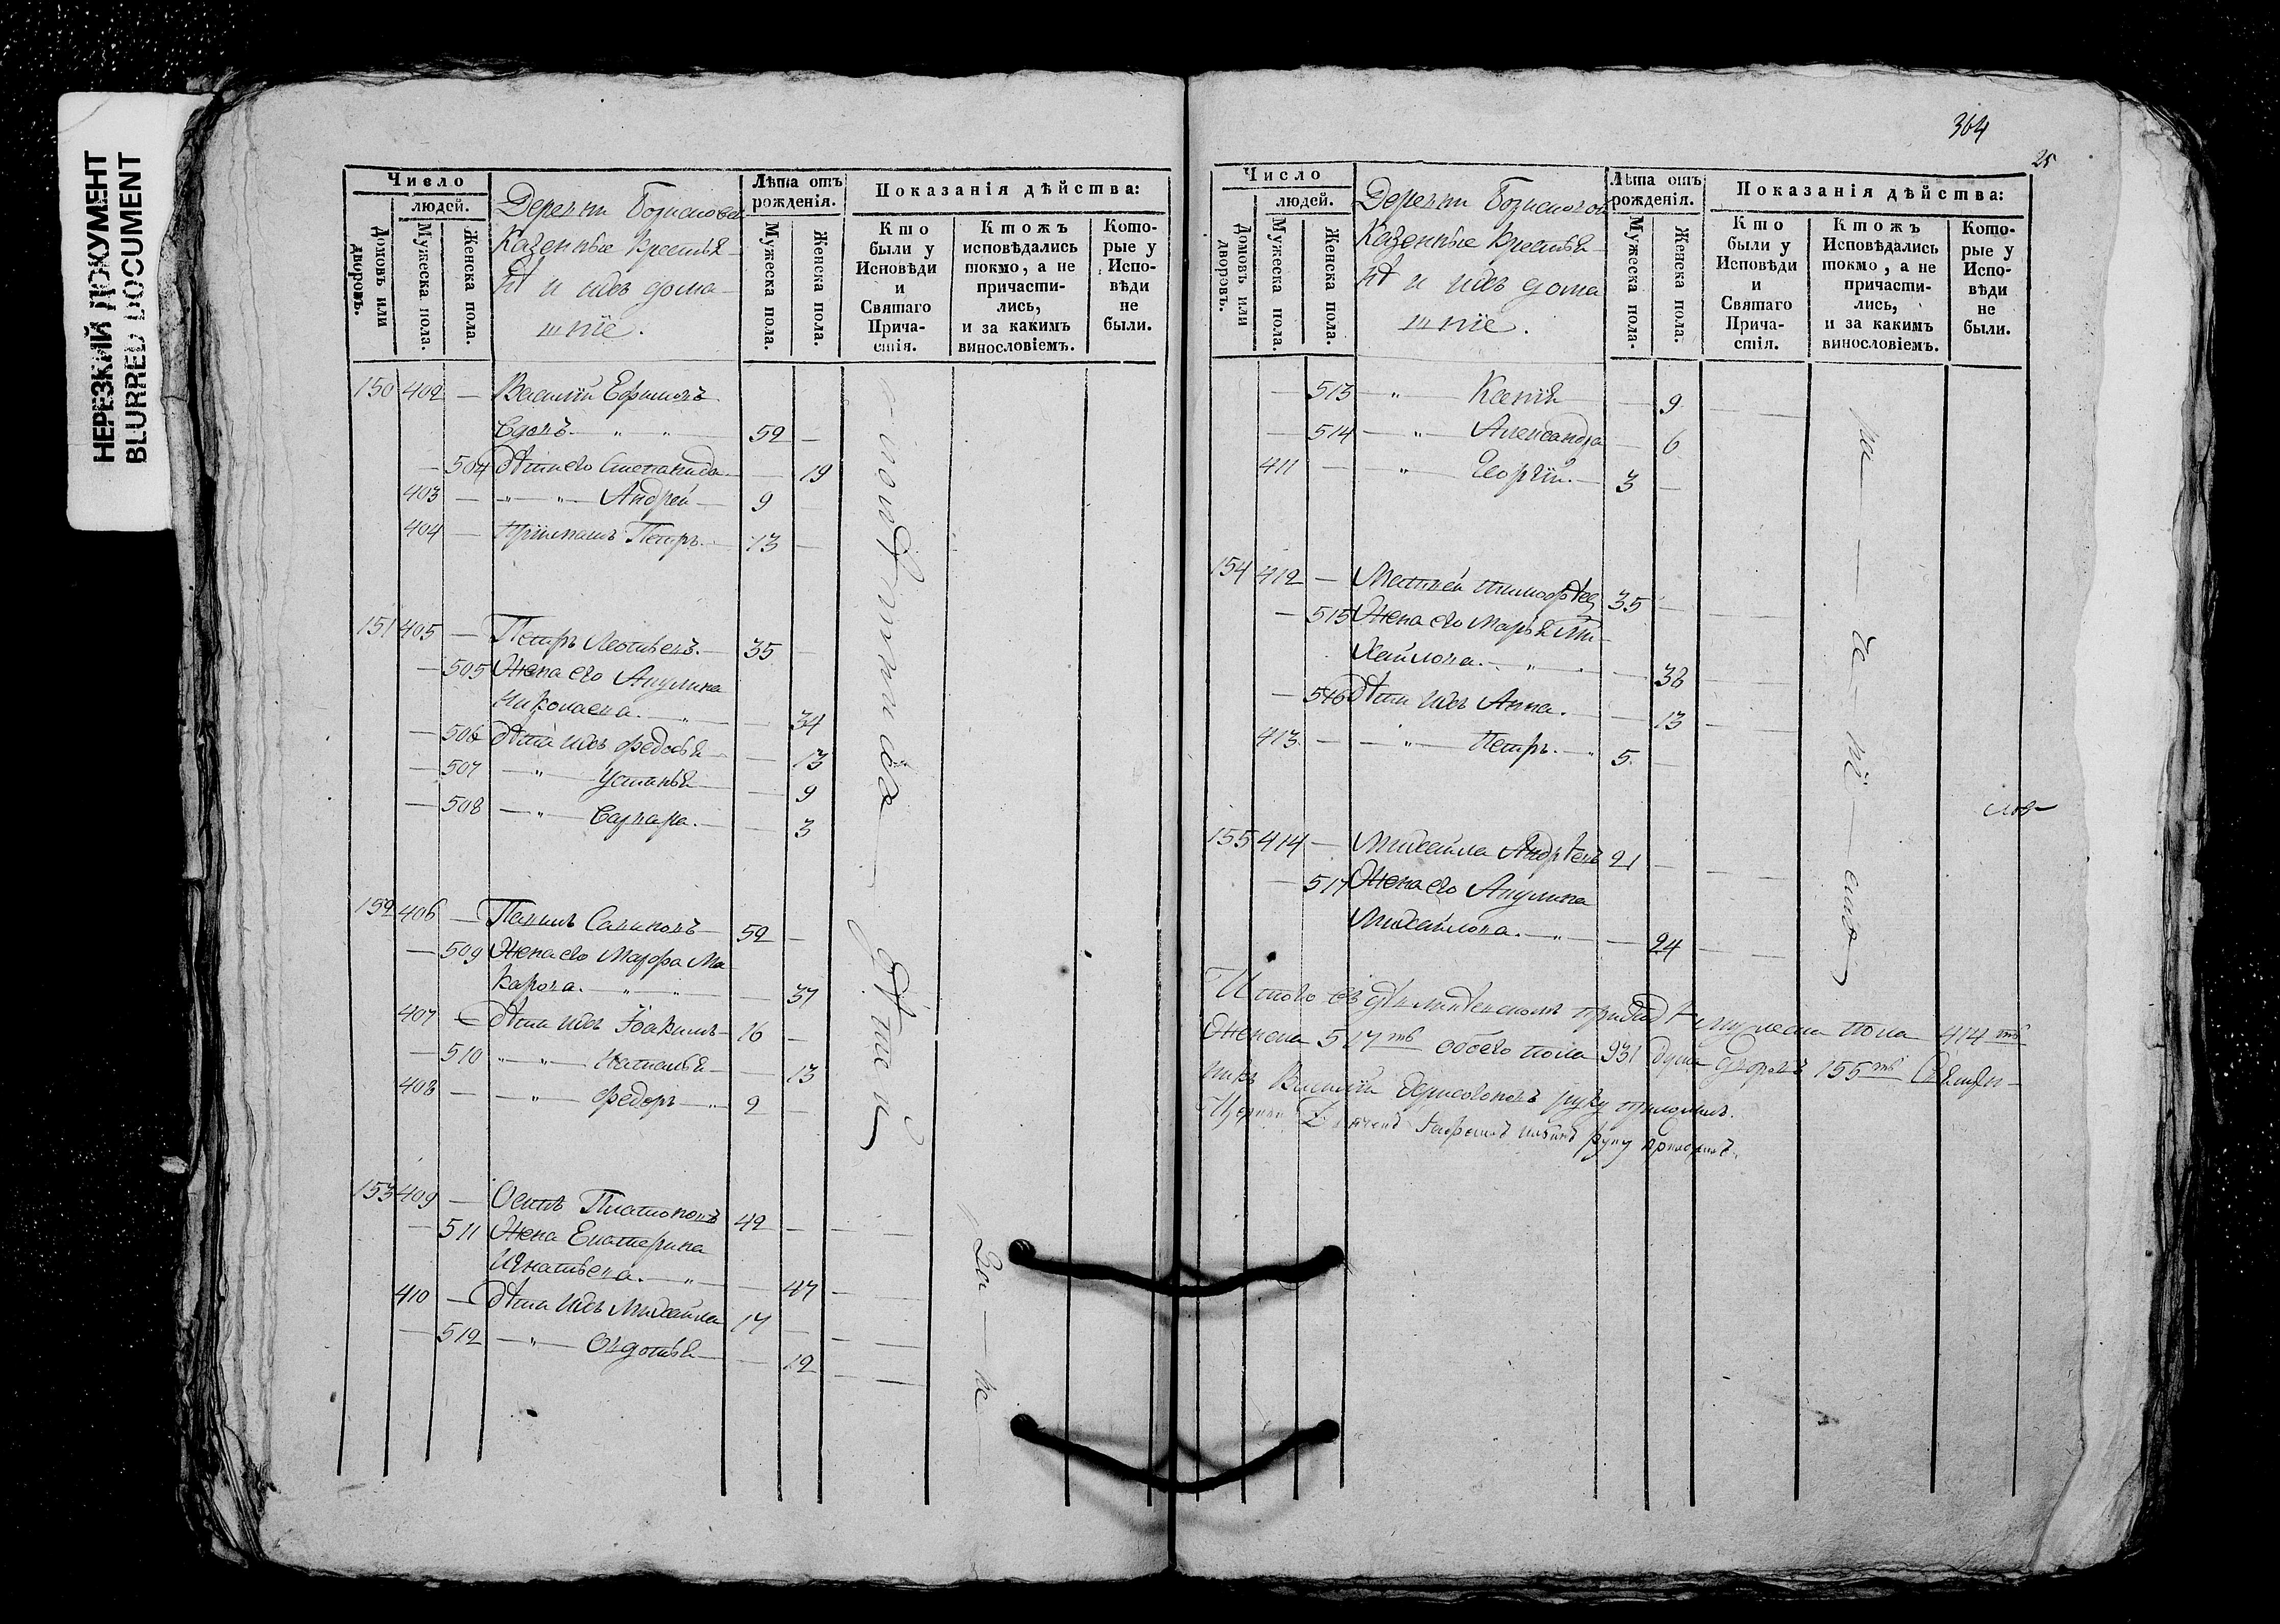 НЕРЕЗКИЙ ДОКУМЕНТ
BLURRED DOCUMENT
Число
людей.
Домовъ или дворовъ.
Мужеска пола.
Женска пола.
Деревни
Казенные крестья-
нѣ и ихъ дома-
шніе.
Лѣта отъ рожденія.
Мужеска пола.
Женска пола.
Показанія дѣйства:
Кто были у Исповѣди и Святаго Причастія.
Ктожъ исповѣдались токмо, а не причастились, и за какимъ винословіемъ.
Которые у Исповѣди не были.
150 402 — Василій Ефимовъ
вдовъ — " — " 52 —
— 504 дѣти его Степанида — 19
403 — — " — " Андрей — 9 —
404 — пріимашъ Петръ. — 13 —
151 405 — Петръ Леонтьевъ. — 35 —
— 505 Жена его Акулина
Николаева. — " — 34
— 506 дѣти ихъ Федосья — 13
— 507 — " — Устинья — 9
— 508 — " — Варвара. — 3
152 406 — Павелъ Савиновъ — 52 —
— 509 Жена его Марфа Ма-
карова. — " — " — 37
407 — дѣти ихъ Іоакимъ — 16 —
— 510 — " — " Наталья — 13
408 — — " — Федоръ — " 2 —
153 409 — Осипъ Платоновъ 42 —
— 511 Жена Екатерина
Игнатьева. — " — 47
410 — дѣти ихъ Михайла 17 —
— 512 — " — Овдотья — 12
За — не
364
25
Число
людей.
Домовъ или дворовъ.
Мужеска пола.
Женска пола.
Деревни
Казенные крестья-
нѣ и ихъ дома
шніе.
Лѣта отъ рожденія.
Мужеска пола.
Женска пола.
Показанія дѣйства:
Кто были у Исповѣди и Святаго Причастія.
Ктожъ Исповѣдались токмо, а не причастились, и за какимъ винословіемъ.
Которые у Исповѣди не были.
— 513 — " — Ксенія — 9
— 514 — " — Александра — 6
411 — " — Георгій. — 3 —
154 412 — Матвей Тимофѣев 35 —
— 515 Жена его Марья Ми-
хайлова. — " — 38
— 516 дѣти ихъ Анна. — 13
413 — — " — Петръ. — " 5 —
155 414 — Михайла Андрѣевъ 21 —
— 517 Жена его Акулина
Михайлова. — " — 24
Итого въ приходѣ мужеска пола 414ть
Женска 517ть обоего пола 931 душа дворовъ 155ть Священ-
никъ Василій руку приложилъ.
руку приложилъ.